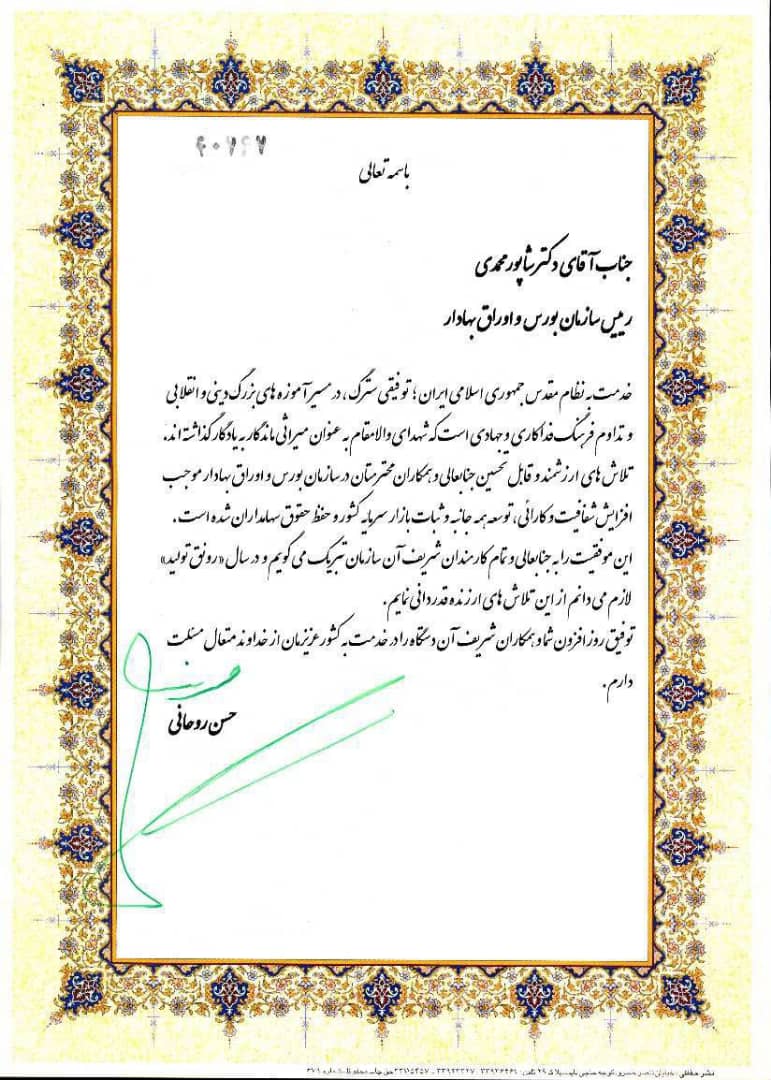 ۶۰۷۶۷
باسمه تعالی
جناب آقای دکتر شاپور محمدی
رییس سازمان بورس و اوراق بهادار
خدمت به نظام مقدس جمهوری اسلامی ایران؛ توفیقی سترگ، در مسیر آموزه های بزرگ دینی و انقلابی
و تداوم فرهنگ فداکاری و جهادی است که شهدای والامقام به عنوان میراثی ماندگار به یادگار گذاشته اند.
تلاش های ارزشمند و قابل تحسین جنابعالی و همکاران محترمتان در سازمان بورس و اوراق بهادار موجب
افزایش شفافیت و کارائی، توسعه همه جانبه و ثبات بازار سرمایه کشور و حفظ حقوق سهامداران شده است.
این موفقیت را به جنابعالی و تمام کارمندان شریف آن سازمان تبریک می گویم و در سال «رونق تولید»
لازم می دانم از این تلاش های ارزنده قدردانی نمایم.
توفیق روز افزون شما و همکاران شریف آن دستگاه را در خدمت به کشور عزیزمان از خداوند متعال مسئلت
دارم.
حسن روحانی